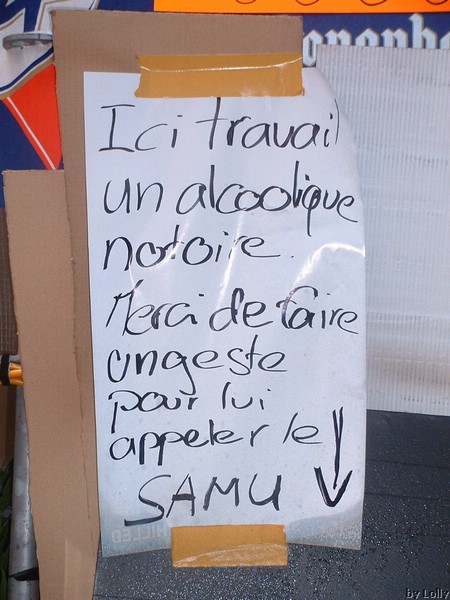 Ici travail
un alcoolique
notoire.
Merci de faire
un geste
pour lui
appeler le
SAMU
by Lolly